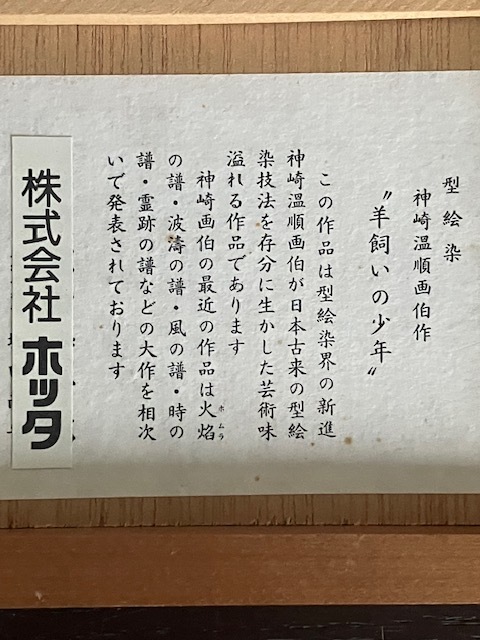 型絵染
神崎温順画伯作
〝羊飼いの少年〟
この作品は型絵染界の新進
神崎温順画伯が日本古来の型絵
染技法を存分に生かした芸術味
溢れる作品であります
神崎画伯の最近の作品は火焰
ホムラ
の譜・波濤の譜・風の譜・時の
譜・霊跡の譜などの大作を相次
いで発表されております
株式会社 ホッタ